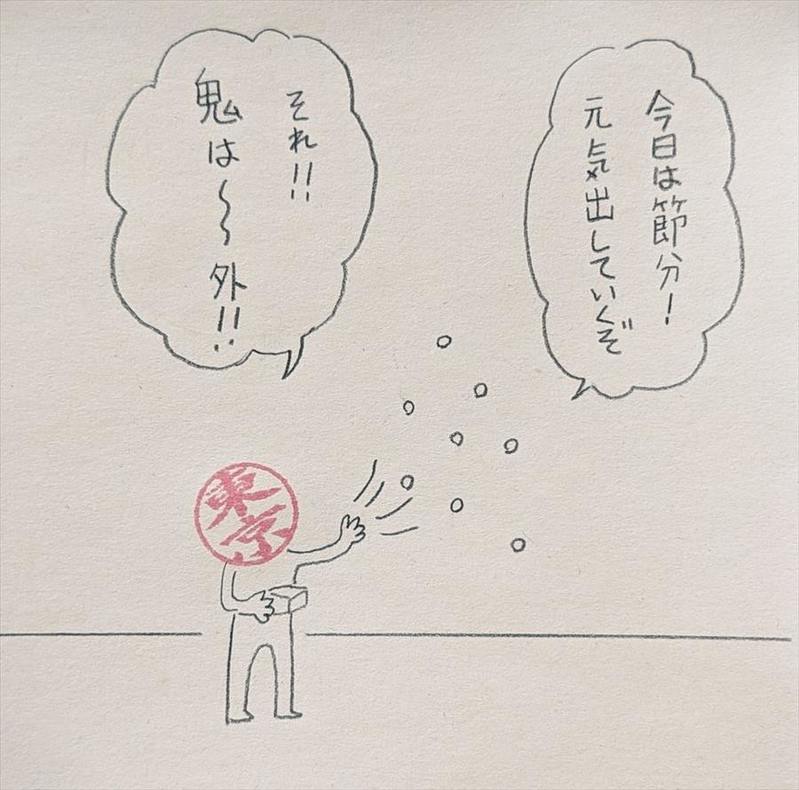 今日は節分！
元気出していくぞ
それ！！
鬼は～～外！！
東京